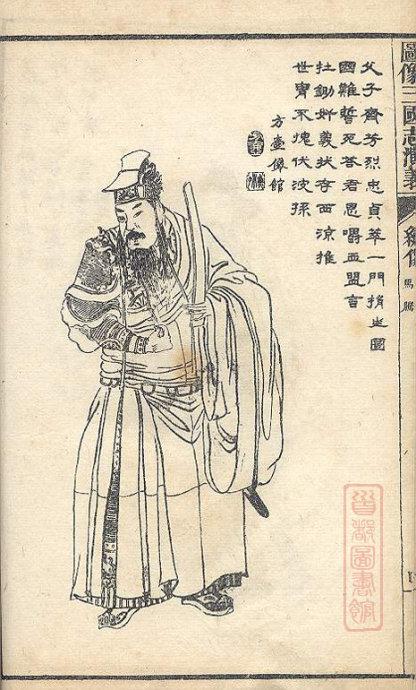 圖像三國志演義
繡像
馬騰
父子齊芳烈忠貞萃一門捐生圖
國難誓死答君恩嚼血盟言
在鋤奸義狀存西涼推
世冑不愧伏波孫
方壺僊館
首都圖書館